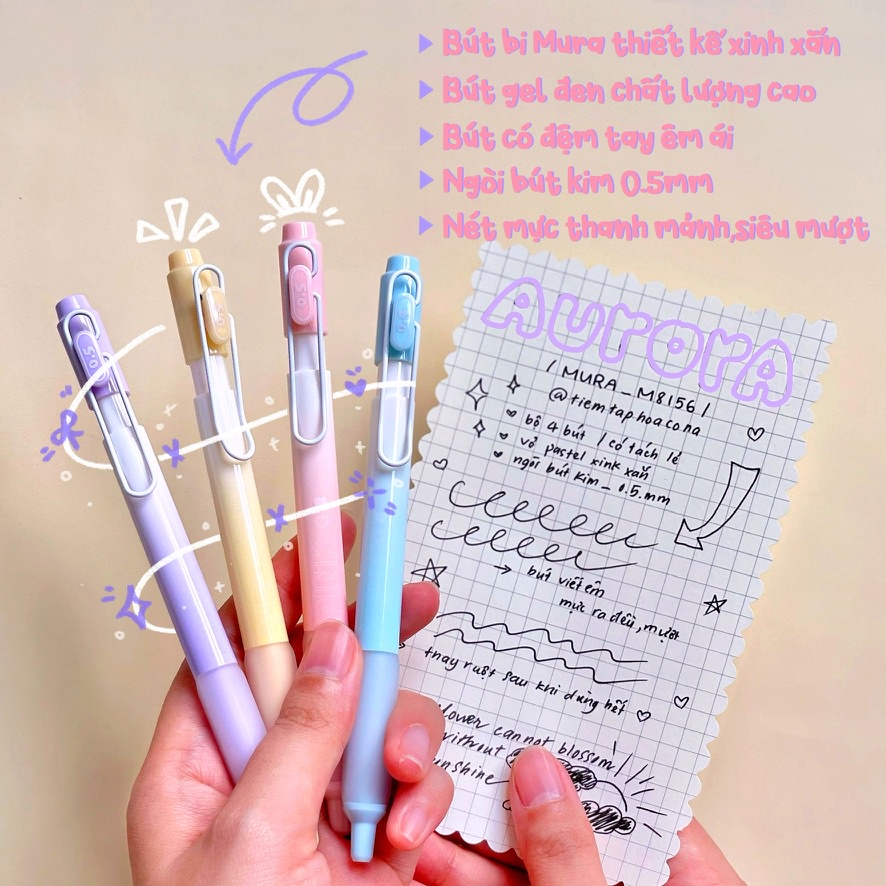 Bút bi Mura thiết kế xinh xắn
Bút gel đen chất lượng cao
Bút có đệm tay êm ái
Ngòi bút kim 0.5mm
Nét mực thanh mảnh,siêu mượt
AurorA
/ MURA _ M8156 /
@tiemtaphoacona
bộ 4 bút / có tách lẻ
vỏ pastel xink xắn
ngòi bút kim _ 0.5.mm
bút viết êm
mực ra đều, mượt
thay ruột sau khi dùng hết
flower cannot blossom
without
sunshine
0.5
0.5
0.5
0.5